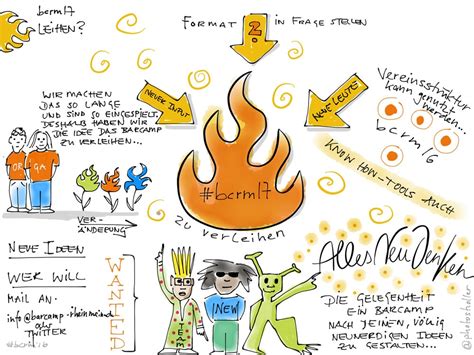 bcrm17
LEIHEN?
FORMAT ? IN FRAGE STELLEN
WIR MACHEN
DAS SO LANGE
UND SIND SO EINGESPIELT,
DESHALB HABEN WIR
DIE IDEE DAS BARCAMP
ZU VERLEIHEN...
NEUER INPUT
NEUE LEUTE
Vereinsstruktur
kann genutzt
werden...
bcrm16
KNOW HOW-TOOLS AUCH
ORGA
VER-
ÄNDERUNG
#bcrm17
zu verleihen
NEUE IDEEN
WER WILL
MAIL AN.
info@barcamp-rheinmain.de
ODER
TWITTER
WANTED
TEAM
NEW
Alles Neu Denken
DIE GELEGENHEIT
EIN BARCAMP
NACH SEINEN, VÖLLIG
NEUWERDIGEN IDEEN
ZU GESTALTEN...
#bcrm16